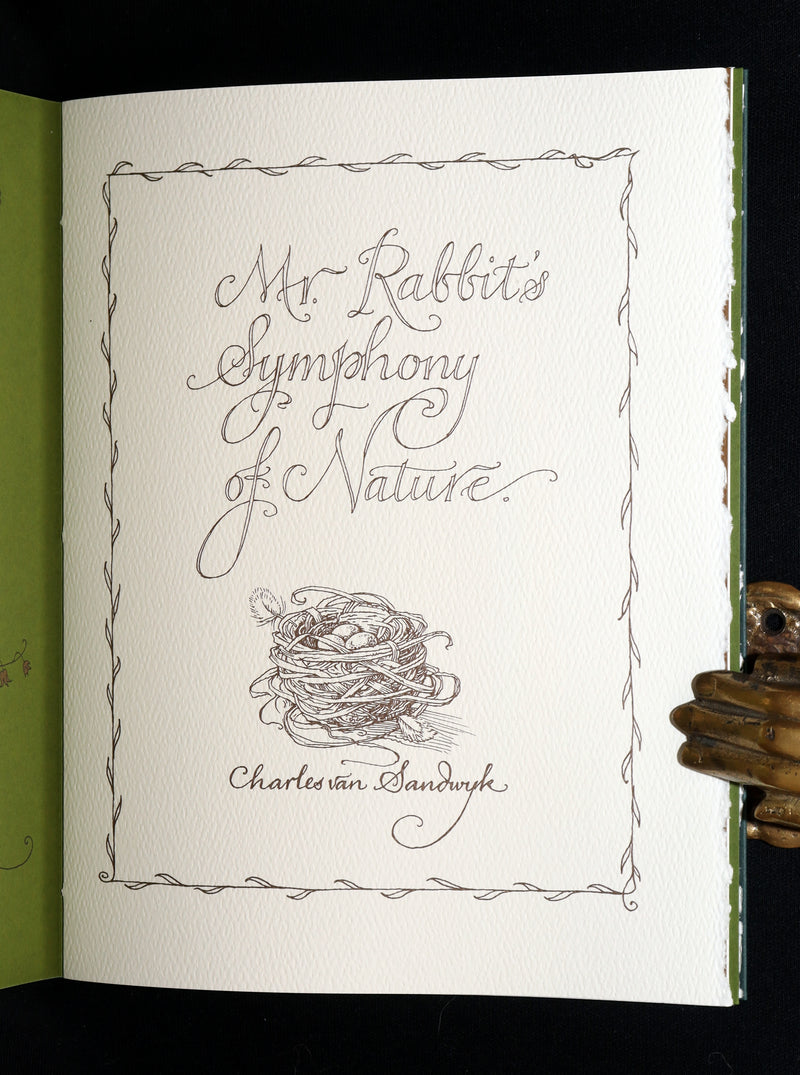 Mr. Rabbit's
Symphony
of Nature.
Charles van Sandwyk